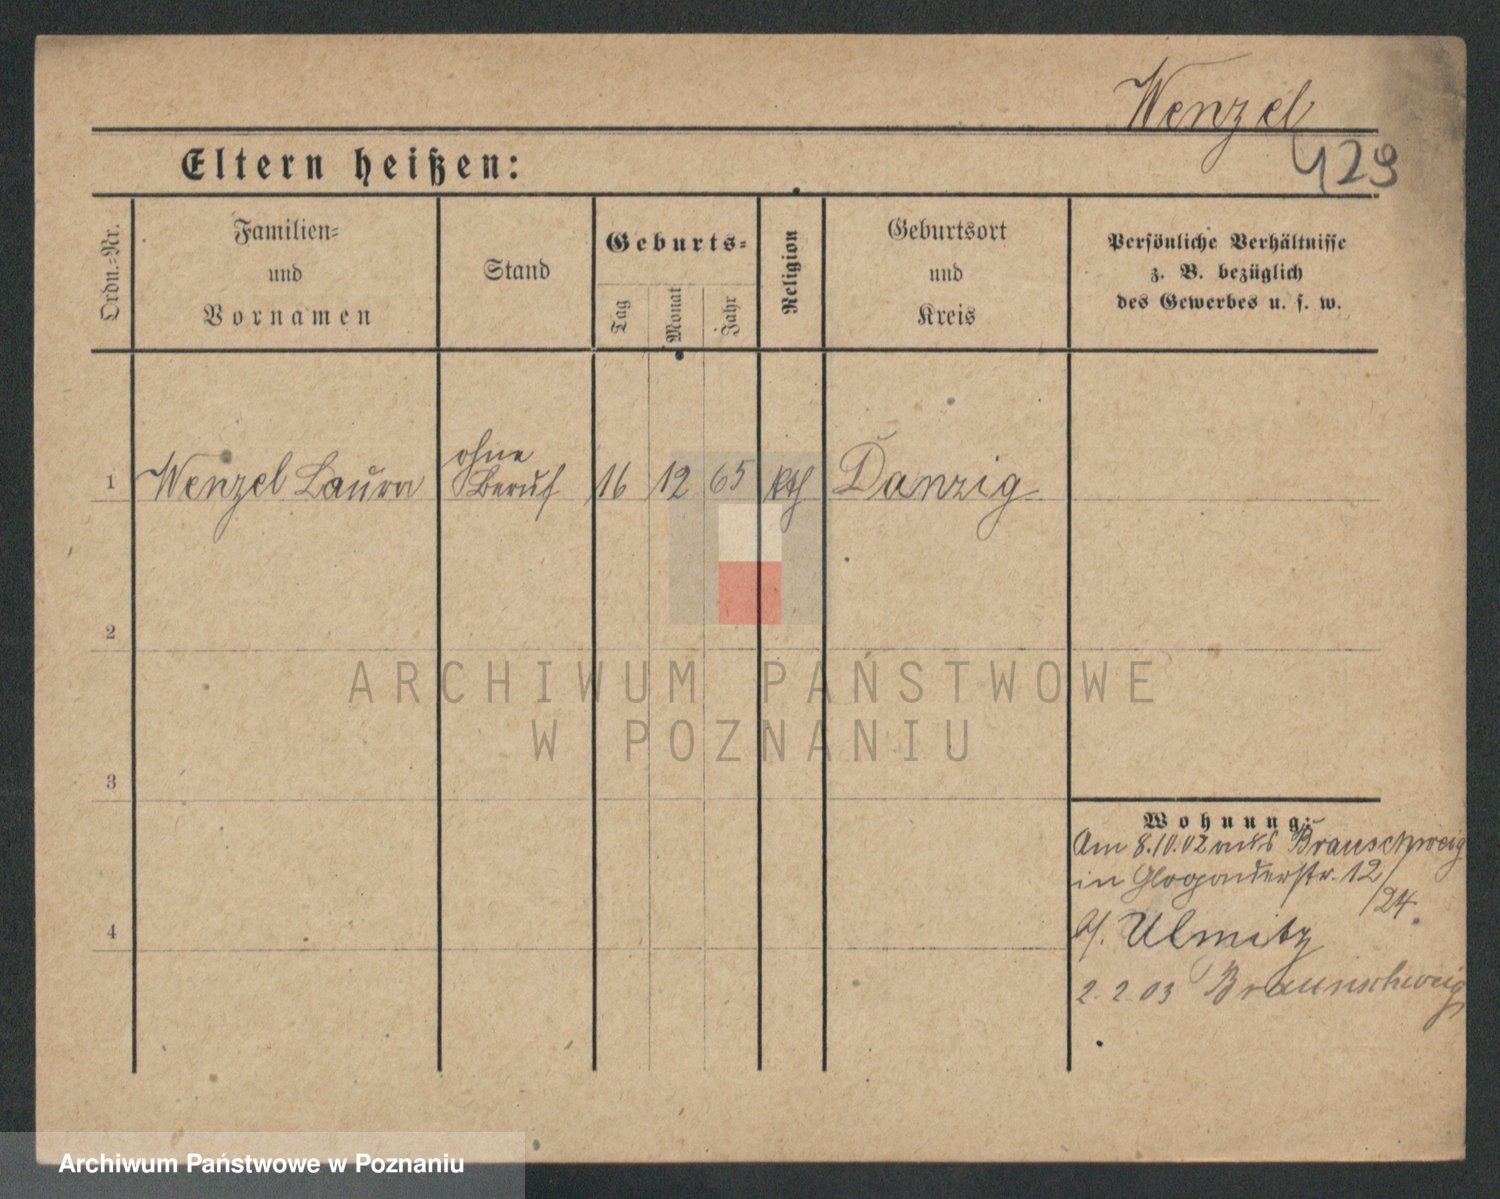 Wenzel
429
Eltern heißen:
Ordn.-Nr.
Familien-
und
Vornamen
Stand
Geburts-
Tag
Monat
Jahr
Religion
Geburtsort
und
Kreis
Persönliche Verhältnisse
z. B. bezüglich
des Gewerbes u. s. w.
1 Wenzel Laura ohne Beruf 16 12 65 kth Danzig
2
ARCHIWUM PAŃSTWOWE
W POZNANIU
3
Wohnung:
Am 8.10.02 aus Braunschweig
in Glogauerstr. 12/
/24
b/. Ulmitz
4
2.2.03 Braunschweig
Archiwum Państwowe w Poznaniu